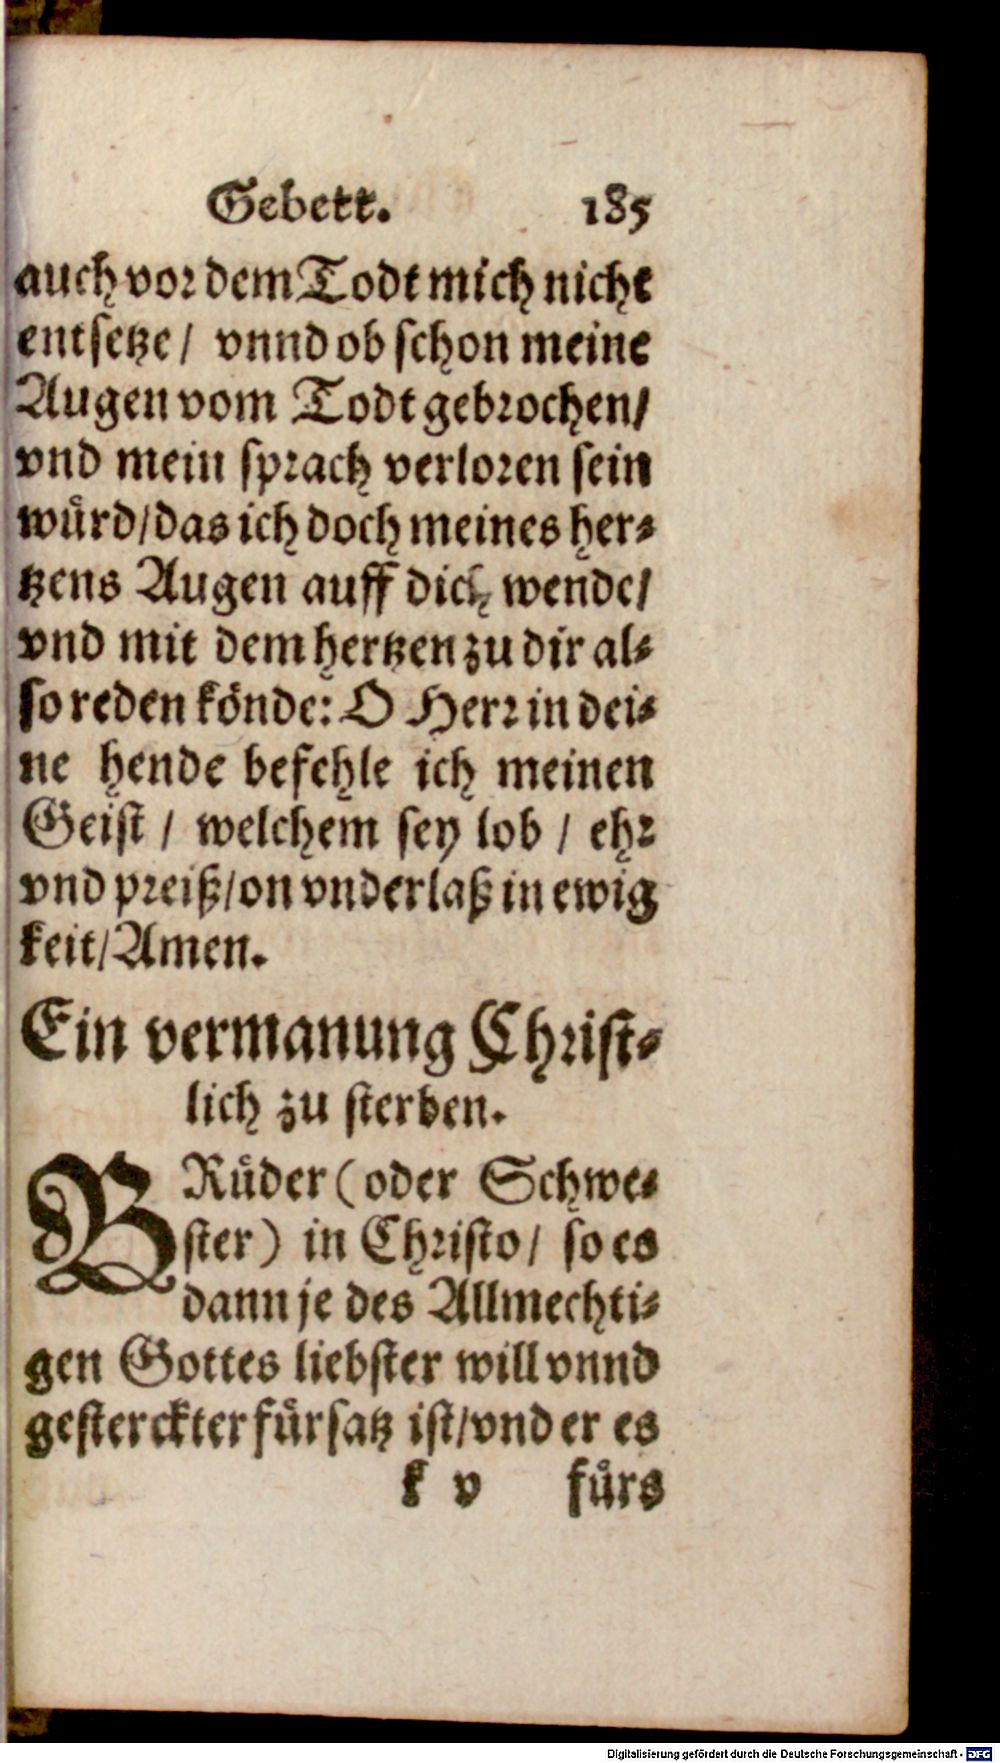 Gebett. 185
auch vor dem Todt mich nicht
entsetze / vnnd ob schon meine
Augen vom Todt gebrochen /
vnd mein sprach verloren sein
wuͤrd / das ich doch meines her⸗
tzens Augen auff dich wende /
vnd mit dem hertzen zu dir al⸗
so reden koͤnde: O Herr in dei⸗
ne hende befehle ich meinen
Geist / welchem sey lob / ehr
vnd preiß / on vnderlaß in ewig
keit / Amen.
Ein vermanung Christ⸗
lich zu sterben.
BRuͤder (oder Schwe⸗
ster) in Christo / so es
dann je des Allmechti⸗
gen Gottes liebster will vnnd
gesterckter fuͤrsatz ist / vnd er es
k v fuͤrs
Digitalisierung gefördert durch die Deutsche Forschungsgemeinschaft - DFG